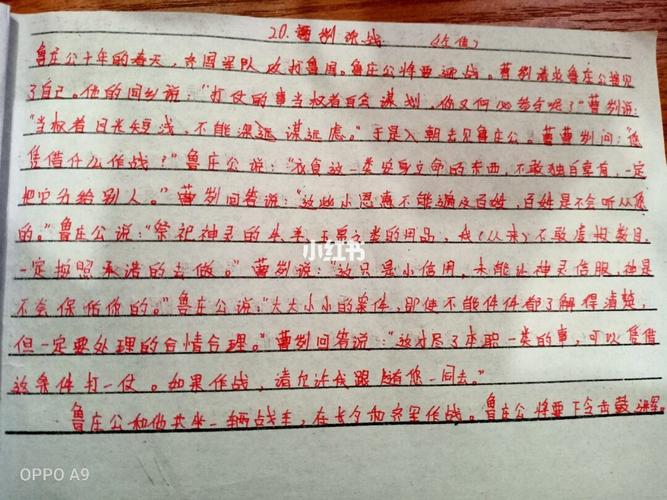 20.曹刿论战 (左传)
鲁庄公十年的春天，齐国军队攻打鲁国。鲁庄公将要迎战。曹刿请求鲁庄公接见
了自己。他的同乡说："打仗的事当权者自会谋划，你又何必参合呢？"曹刿说：
"当权者目光短浅，不能深远谋远虑。"于是入朝去见鲁庄公。曹刿问："您
凭借什么作战？"鲁庄公说："衣食这一类安身立命的东西，不敢独自享有，一定
把它分给别人。"曹刿回答说："这些小恩惠不能遍及百姓，百姓是不会听从您
的。"鲁庄公说："祭祀神灵的牛羊、玉帛之类的用品，我(从来)不敢虚报数目，
一定按照承诺的去做。"曹刿说："这只是小信用，未能让神灵信服，神是
不会保佑你的。"鲁庄公说："大大小小的案件，即使不能件件都了解得清楚，
但一定要处理的合情合理。"曹刿回答说："这才尽了本职一类的事，可以凭借
这条件打一仗。如果作战，请允许我跟随您一同去。"
鲁庄公和他共坐一辆战车，在长勺和齐军作战。鲁庄公将要下令击鼓进军
小红书
OPPO A9